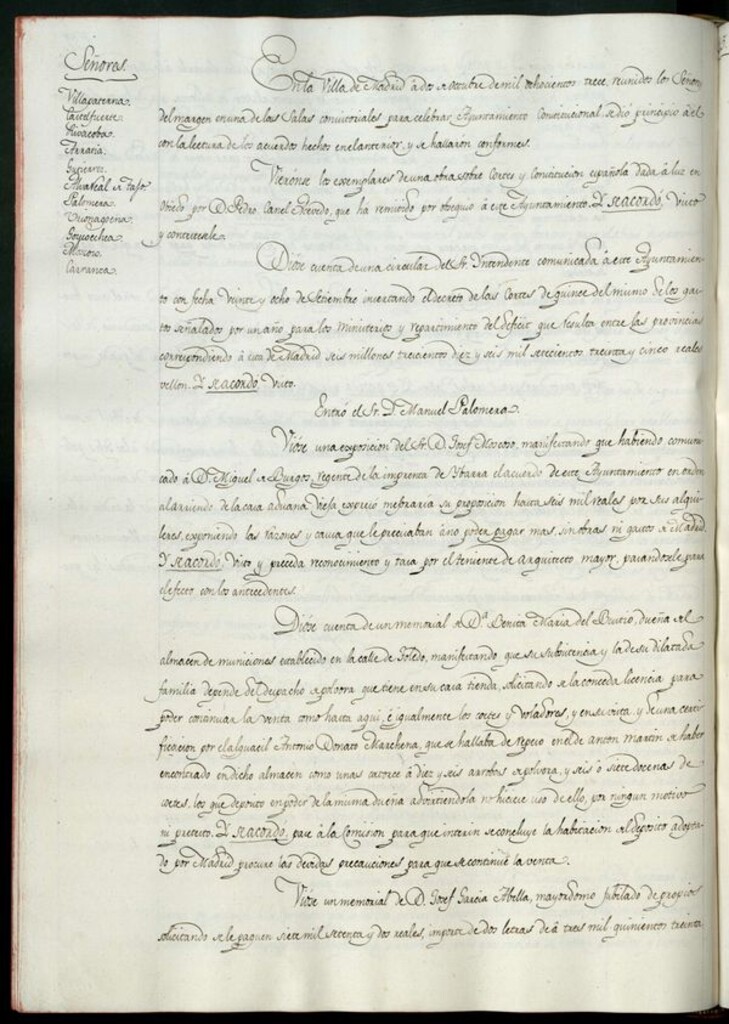 Señores.
Villapaterna.
Castelfuerte.
Rivacoba.
Arraria.
Gutierrez.
Palomera.
Goycoechea.
Moscoso.
Carranca.
En la Villa de Madrid á dos de octubre de mil ochocientos trece, reunidos los Señores
del margen en una de las Salas consistoriales para celebrar Ayuntamiento Constitucional, se dió principio á él
con la lectura de los acuerdos hechos en el anterior, y se hallaron conformes.
Vieronse los exemplares de una obra sobre Cortes y Constitucion española dada á luz en
Oviedo por D. Pedro Canel Acevedo, que ha remitido por obsequio á este Ayuntamiento. Y se acordó, Visto
y contextesele.
Dióse cuenta de una circular del Sr. Intendente comunicada á este Ayuntamien-
to con fecha veinte y ocho de Setiembre insertando el decreto de las Cortes de quince del mismo de los gas-
tos señalados por un año para los Ministerios y repartimiento del deficit que resulta entre las provincias
correspondiendo á esta de Madrid seis millones trescientos diez y seis mil setecientos treinta y cinco reales
vellon. Y se acordó, Visto.
Entró el Sr. D. Manuel Palomera.
Vióse una exposicion del Sr. D. Josef Moscoso, manifestando que habiendo comuni-
cado á D. Miguel de Burgos, regente de la imprenta de Ybarra el acuerdo de este Ayuntamiento en orden
al arriendo de la casa aduana vieja expresó mejoraria su proposicion hasta seis mil reales por sus alqui-
leres, exponiendo las razones y causas que le precisaban á no poder pagar mas, sin obras ni gastos de Madrid.
Y se acordó, Visto y preceda reconocimiento y tasa por el teniente de Arquitecto mayor, pasandosele para
el efecto con los antecedentes.
Dióse cuenta de un memorial de D.ª Benita Maria del Busto, dueña del
almacen de municiones establecido en la calle de Toledo, manifestando que su subsistencia y la de su dilatada
familia depende del despacho de polvora que tiene en su casa tienda, solicitando se la conceda licencia para
poder continuar la venta como hasta aqui, é igualmente los coetes y voladores, y en su vista, y de una certi-
ficacion por el alguacil Antonio Donato Marchena, que se hallaba de repeso en el de Anton Martin de haber
encontrado en dicho almacen como unas catorce á diez y seis arrobas de polvora, y seis ó siete docenas de
coetes, los que deposito en poder de la misma dueña advirtiendola no hiciese uso de ello, por ningun motivo
ni pretexto. Y se acordó, pase á la Comision para que interin se concluye la habitacion del deposito adopta-
do por Madrid procure las devidas precauciones para que se continue la venta.
Vióse un memorial de D. Josef Garcia Abella, mayordomo jubilado de propios
solicitando se le paguen siete mil setenta y dos reales, importe de dos letras de á tres mil quinientos treinta